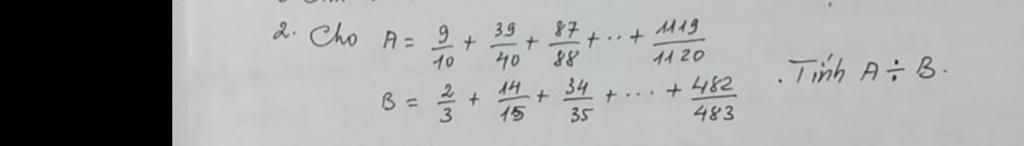 2. Cho A = 9/10 + 39/40 + 87/88 + ... + 1119/1120
B = 2/3 + 14/15 + 34/35 + ... + 482/483 . Tính A ÷ B.